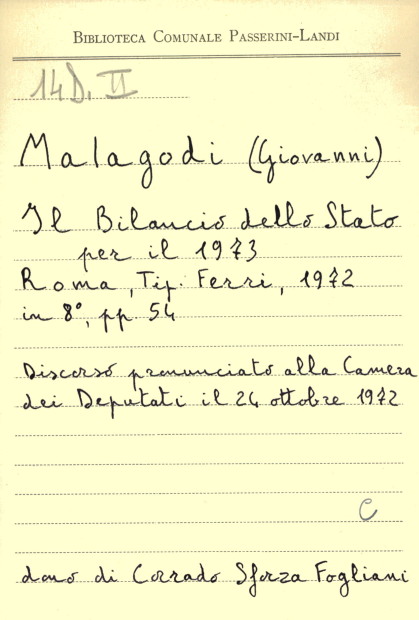 BIBLIOTECA COMUNALE PASSERINI-LANDI
14D. II
Malagodi (Giovanni)
Il Bilancio dello Stato
per il 1973
Roma, Tip. Ferri, 1972
in 8°, pp. 54
Discorso pronunciato alla Camera
dei Deputati il 24 ottobre 1972
C
dono di Corrado Sforza Fogliani